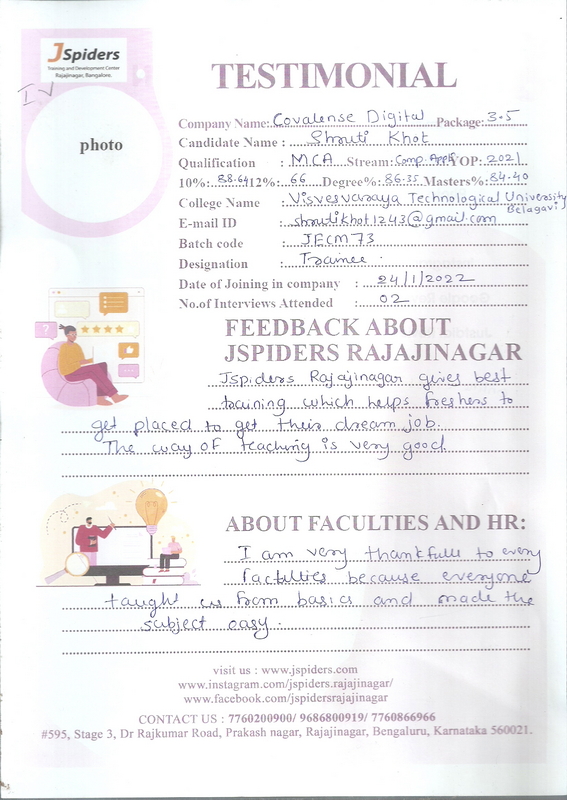 JSpiders
Training and Development Center
Rajajinagar, Bangalore.
IV
photo
TESTIMONIAL
Company Name: Covalense Digital Package: 3.5
Candidate Name : Shruti Khot
Qualification : MCA Stream: Comp. Appli YOP: 2021
10%: 88.64 12%: 66 Degree%: 86.35 Masters%: 84.40
College Name : Visvesvaraya Technological University
Belagavi
E-mail ID : shrutikhot1243@gmail.com
Batch code : JECM73
Designation : Trainee.
Date of Joining in company : 24/1/2022
No.of Interviews Attended : 02
FEEDBACK ABOUT
JSPIDERS RAJAJINAGAR
Jspiders Rajajinagar gives best
training which helps freshers to
get placed to get their dream job.
The way of teaching is very good
ABOUT FACULTIES AND HR:
I am very thankfull to every
faculties because everyone
taught us from basics and made the
subject easy.
visit us : www.jspiders.com
www.instagram.com/jspiders.rajajinagar/
www.facebook.com/jspidersrajajinagar
CONTACT US : 7760200900/ 9686800919/ 7760866966
#595, Stage 3, Dr Rajkumar Road, Prakash nagar, Rajajinagar, Bengaluru, Karnataka 560021.